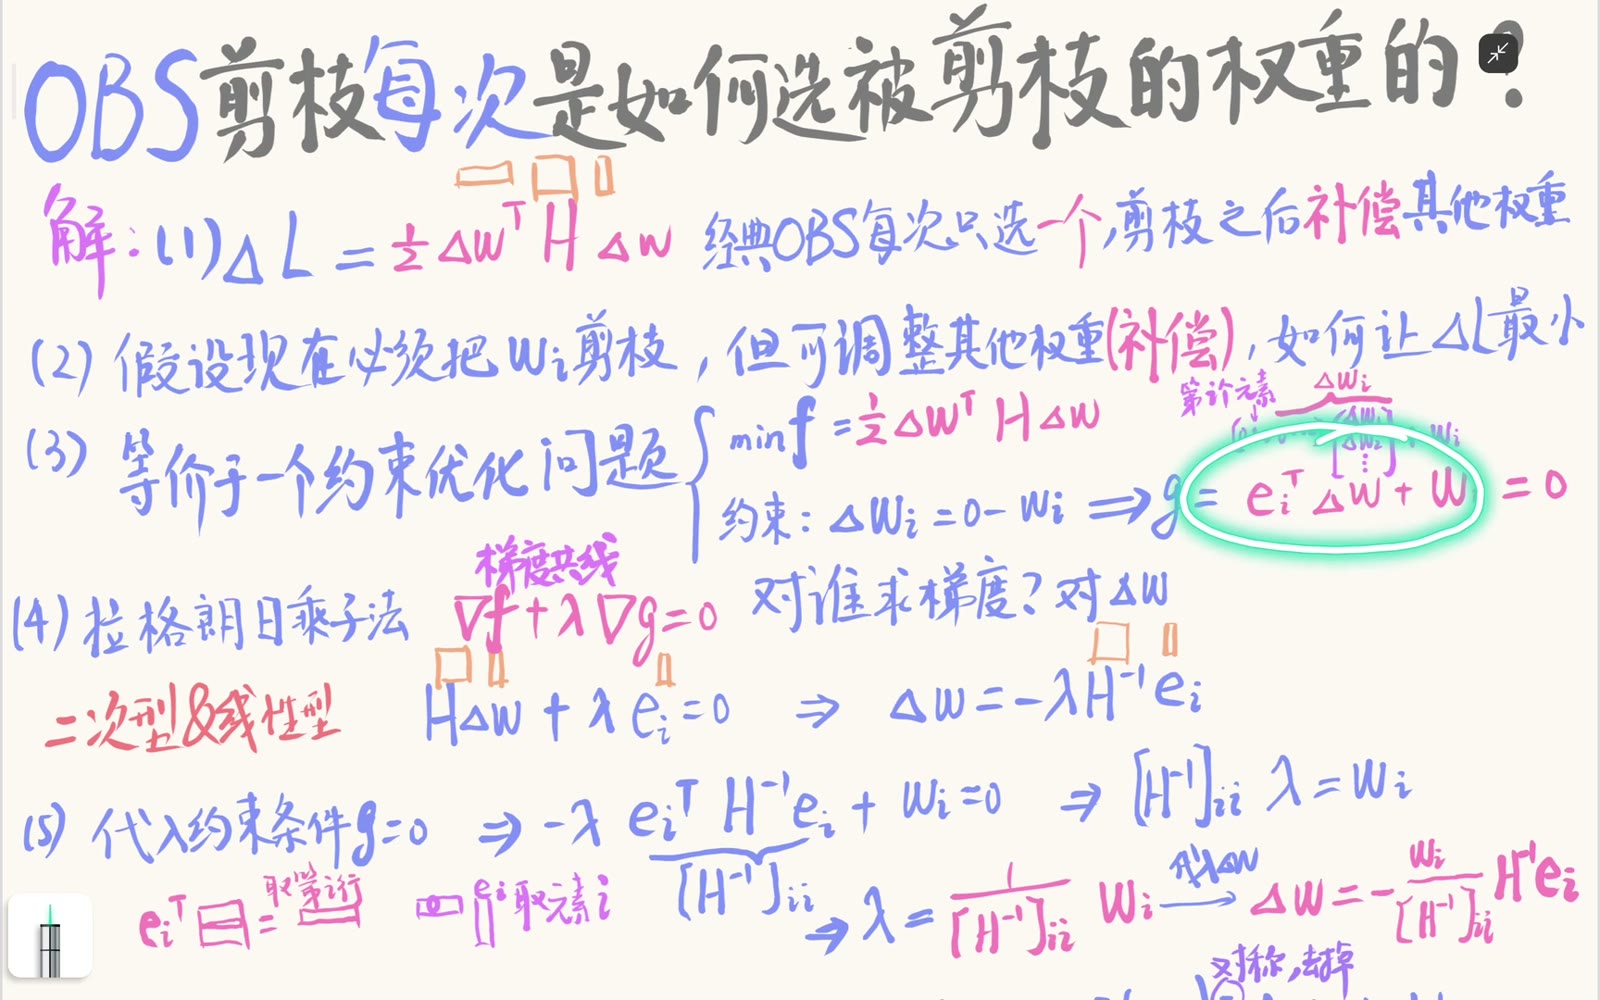 OBS剪枝每次是如何选被剪枝的权重的?
解:(1) ΔL = ½ Δw^T H Δw 经典OBS每次只选一个,剪枝之后补偿其他权重
(2) 假设现在必须把 w_i 剪枝,但可调整其他权重(补偿),如何让 ΔL最小
第i个元素 Δw_i
(3) 等价于一个约束优化问题 { min f = ½ Δw^T H Δw
约束: Δw_i = 0 - w_i ⇒ g = e_i^T Δw + w = 0
梯度共线
(4) 拉格朗日乘子法 ∇f + λ∇g = 0 对谁求梯度?对Δw
二次型&线性型 HΔw + λ e_i = 0 ⇒ Δw = -λH^{-1}e_i
(5) 代入约束条件g=0 ⇒ -λ e_i^T H^{-1} e_i + w_i = 0 ⇒ [H^{-1}]_{ii} λ = w_i
e_i^T = 取第i行 e_i 取元素i [H^{-1}]_{ii} ⇒ λ = 1/[H^{-1}]_{ii} w_i 代入Δw → Δw = - w_i/[H^{-1}]_{ii} H^{-1}e_i
对称,去掉